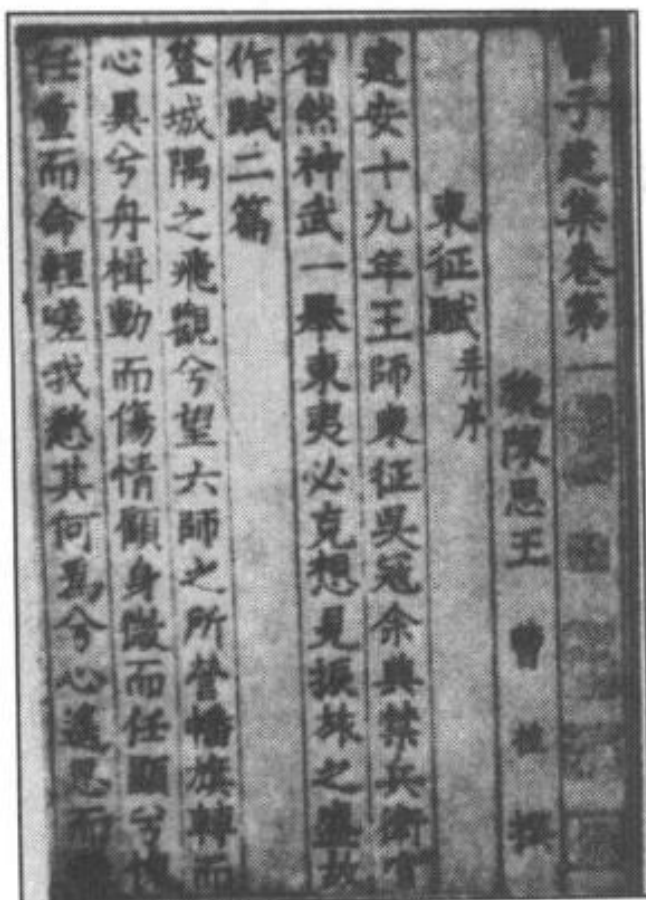 曹子建集卷第一
魏陳思王 曹 植 撰
東征賦 并序
建安十九年王師東征吳寇余典禁兵衛宫
省然神武一舉東夷必克想見振旅之盛故
作賦二篇
登城隅之飛觀兮望六師之所營幡旗轉而
心異兮舟楫動而傷情顧身微而任顯兮愧
任重而命輕嗟我愁其何爲兮心遙思而